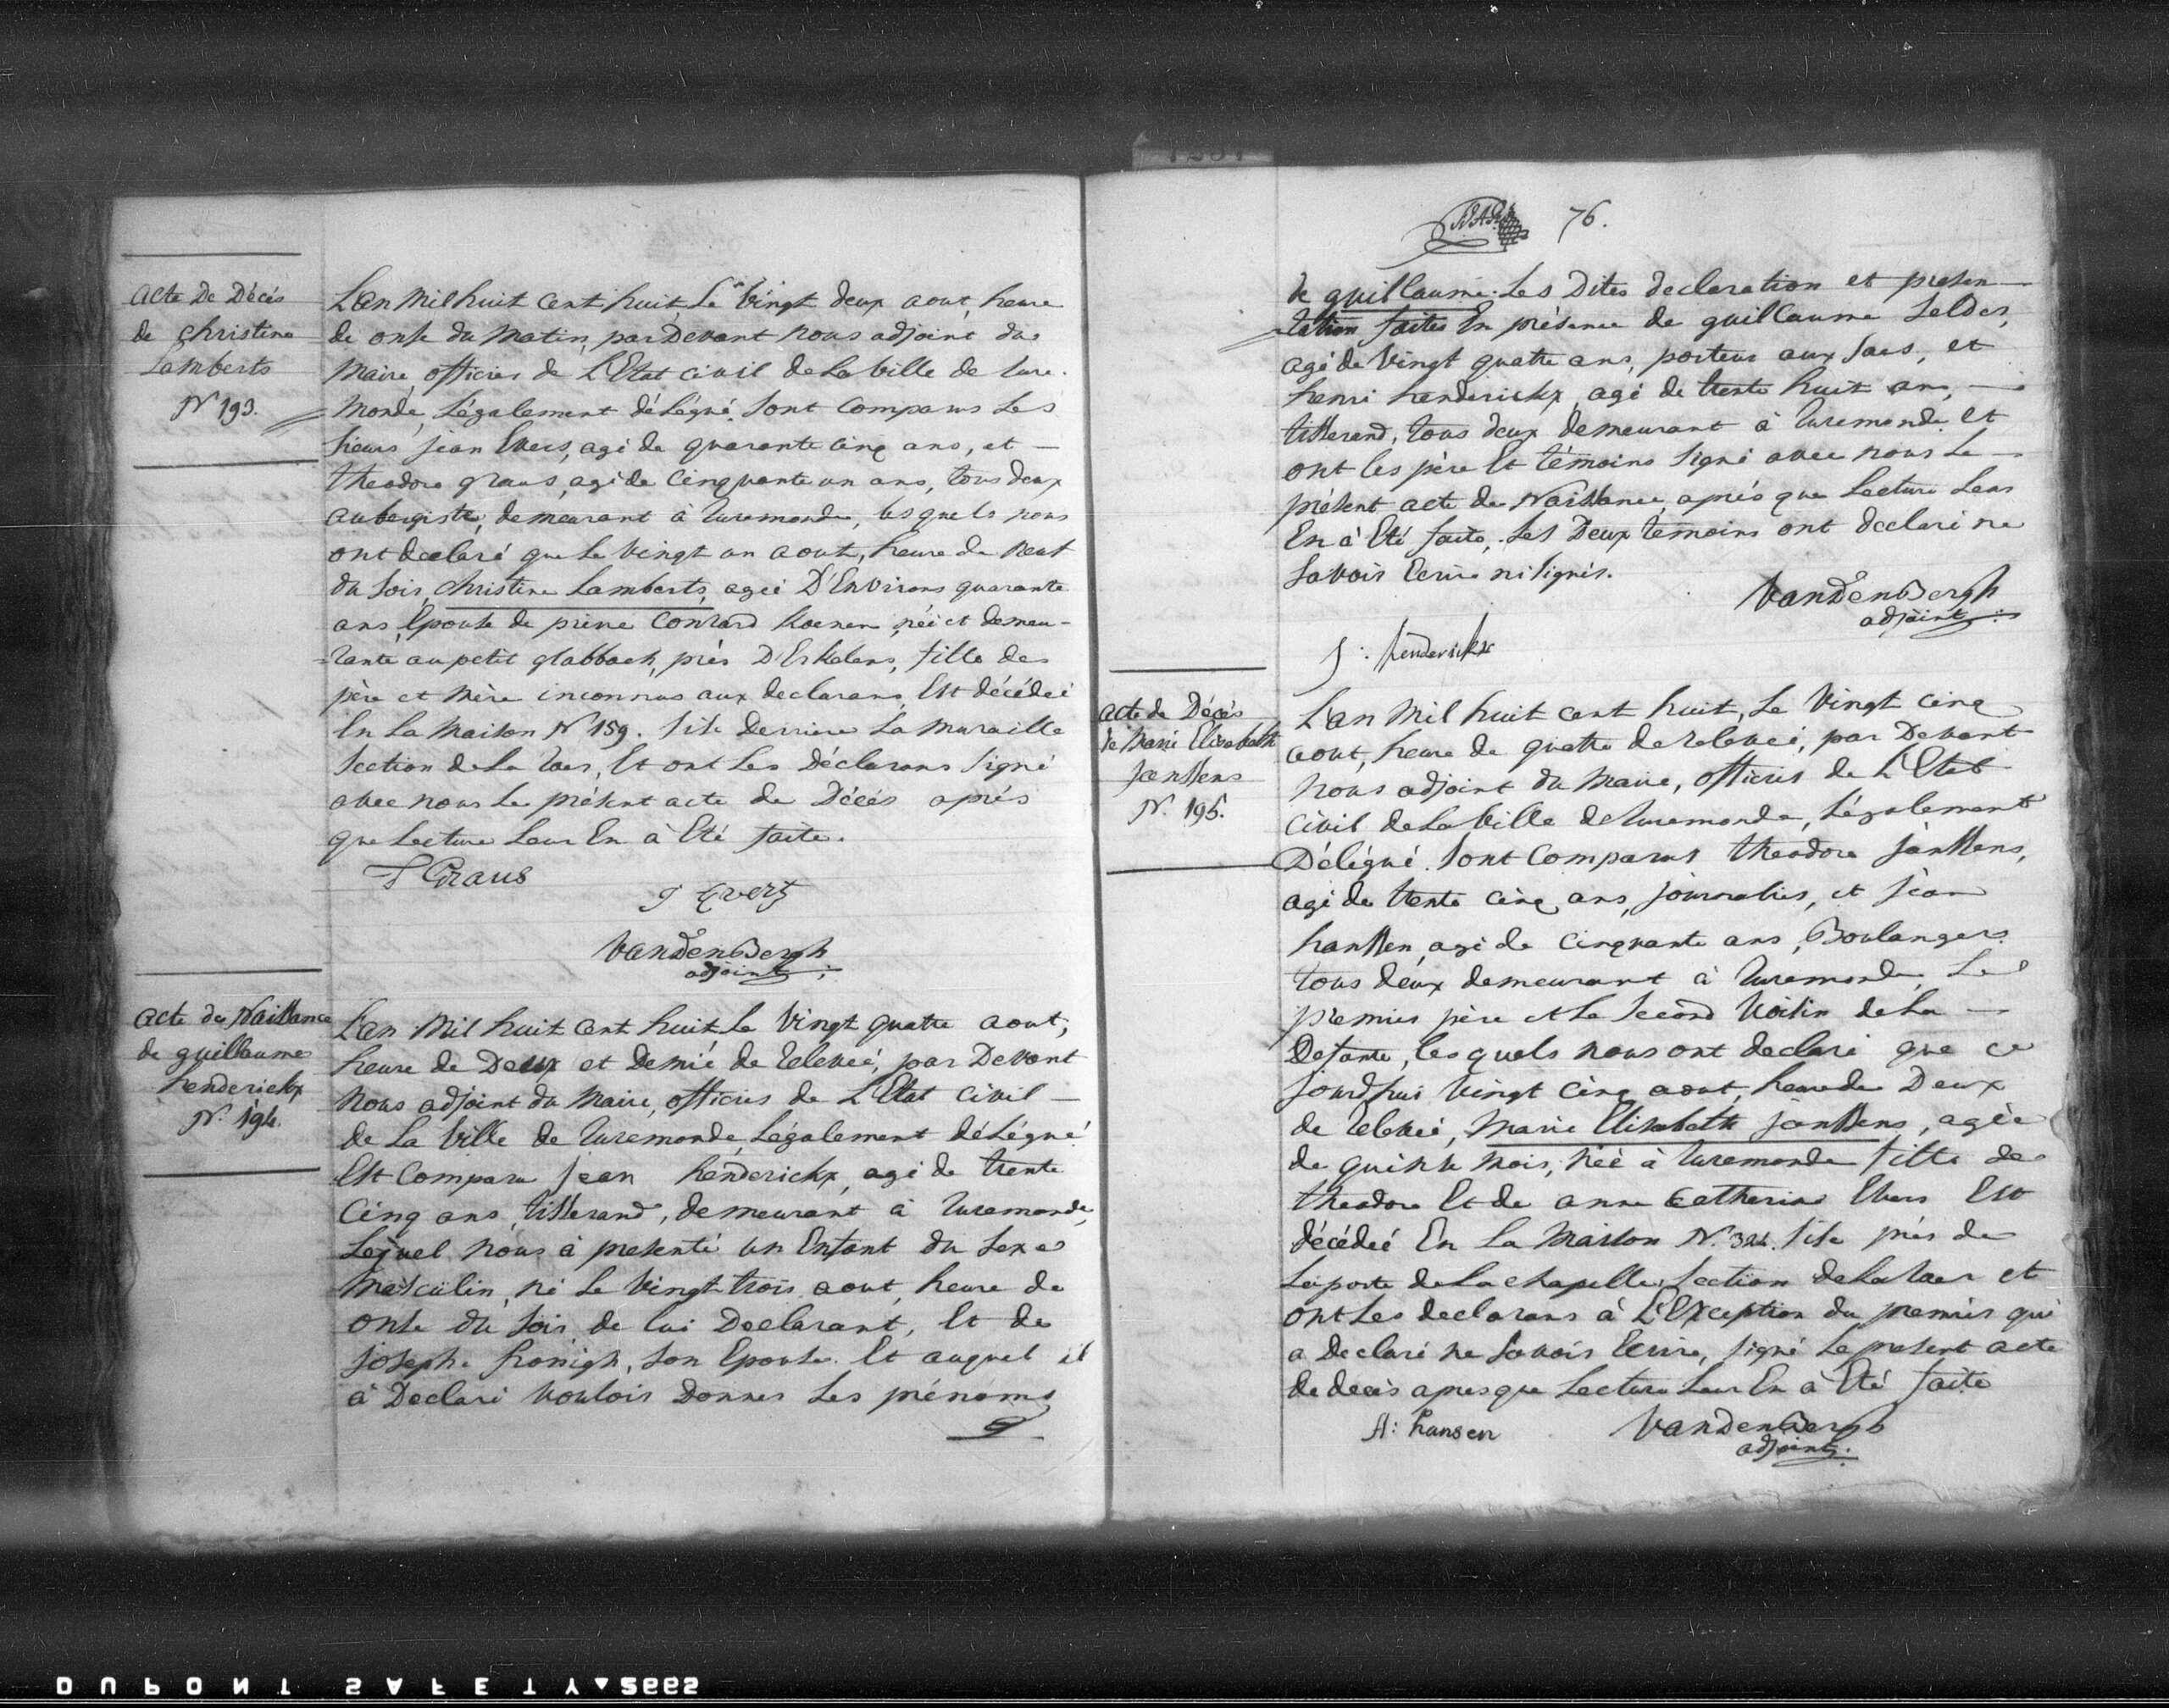 acte de Décès
de christine
Lamberts
N 193.
L'an mil huit cent huit, Le vingt deux aout, heure
de onse du matin, par Devant nous adjoint du
Maire, officier de L'Etat civil de La ville de Rure-
monde, Légalement délégué. Sont Comparus Les
sieurs jean Evers, agé de quarante cinq ans, et —
theodore graus, agé de Cinquante un ans, tous deux
aubergiste, demeurant à Ruremonde, lesquels nous
ont declaré que Le vingt un aout, heure de neuf
du soir, christine Lamberts, ageé D'Environs quarante
ans, Epouse de pierre Conrard Koenen, née et demeu-
-rante au petit glabbach, près D'Erkelens, fille de
père et mère inconnus aux declarans, Est décédeé
En La maison N 159. sise Derriere La muraille
Section de La Roer, Et ont Les Déclarans signé
avec nous Le présent acte de Décés après
que Lecture Leur En à Eté faite.
T Graus
J Evertz
VandenBergh
adjoint
acte de Naissance
de guillaume
henderickx
N. 194.
L'an mil huit cent huit, Le vingt quatre aout,
heure de Deux et demié de relevéé, par Devant
nous adjoint du Maire, officier de L'Etat Civil —
de La ville de Ruremonde, Légalement déLégué.
Est Comparu jean henderickx, agé de trente
Cinq ans, tisserand, demeurant à Ruremonde,
Lequel nous à presenté un Enfant du sexe
masculin, né Le vingt trois aout, heure de
onse du soir, de lui Declarant, Et de
josephe, son Epouse. Et auquel il
à Declaré vouloir Donner Les prénoms
76.
de guillaume. Les Dites declaration et presen—
-tation faites En présence de guillaume Selder,
agé de vingt quatre ans, porteur aux sacs, et
henri henderickx, agé de trente huit ans, —
tisserand, tous deux demeurant à Ruremonde. et
ont les père Et témoins signé avec nous Le —
présent acte de Naissance, aprés que Lecture Leur
En à Eté faite, Les Deux temoins ont declaré ne
savoir Ecrire ni signer.
VandenBergh
adjoint
J: henderickx
acte de Décés
de Marie Elisabeth
janssens
N. 195.
L'an mil huit cent huit, Le vingt cinq
aout, heure de quatre de relevéé, par Devant
nous adjoint du Maire, officier de L'Etat
Civil de La ville de Ruremonde, Légalement
Délégué. Sont Comparus theodore janssens,
agé de trente cinq ans, journalier, et jean
hanssen, agé de Cinquante ans, Boulanger.
tous deux demeurant à Ruremonde, Le
premier père et Le second voisin de La —
Defunte, Lesquels nous ont declaré que ce
jourd'hui vingt cinq aout, heure de Deux
de relevéé, Marie Elisabeth janssens, agée
de quinse mois, néé à Ruremonde fille de
theodore Et de anne Catherine Evers Est
décédeé En La maison N. 324. sise près de
La porte de La chapelle, section de La Roer et
ont Les declarans à L'Exception du premier qui
a declaré ne savoir Ecrire, signé Le present acte
de decès apres que Lecture Leur En à Eté faite
A: hansen
VandenBergh
adjoint.
DUPONT SAFETY